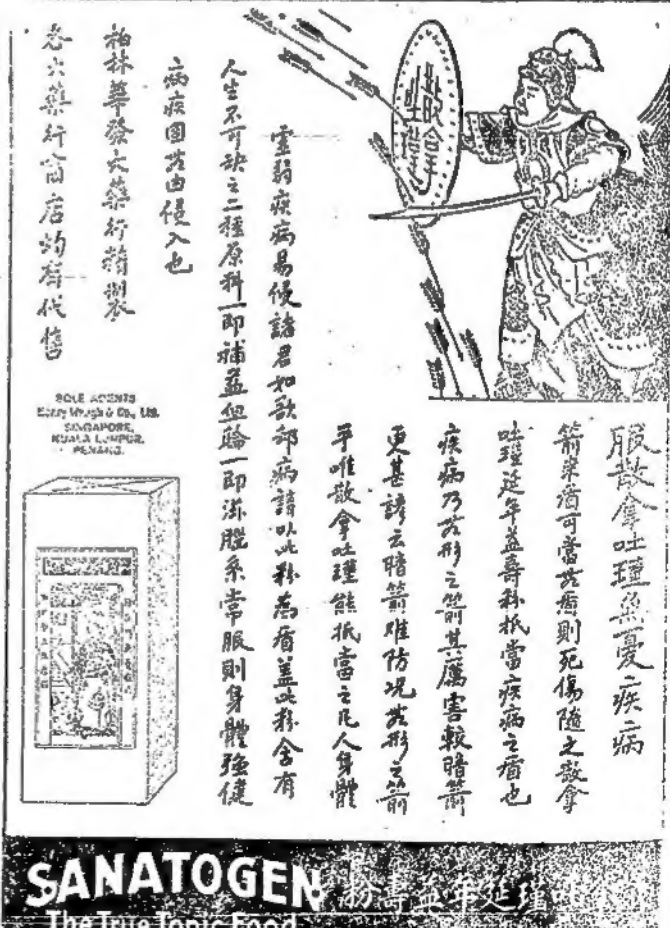 散拿
吐瑾
服散拿吐瑾無憂疾病
箭來盾可當無盾則死傷隨之散拿
吐瑾延年益壽粉抵當疾病之盾也
疾病乃無形之箭其厲害較暗箭
更甚諺云暗箭難防况無形之箭
乎唯散拿吐瑾能抵當之凡人身體
虛弱疾病易侵諸君如欲却病請以此粉為盾盖此粉含有
人生不可缺之二種原料一即補益血輪一即滋腦系常服則身體強健
病疾固無由侵入也
柏林華發大藥行精製
各大藥行商店均有代售
SOLE AGENTS
Henry Waugh & Co., Ltd.
SINGAPORE,
KUALA LUMPUR,
PENANG.
SANATOGEN
The True Tonic Food
散拿吐瑾延年益壽粉